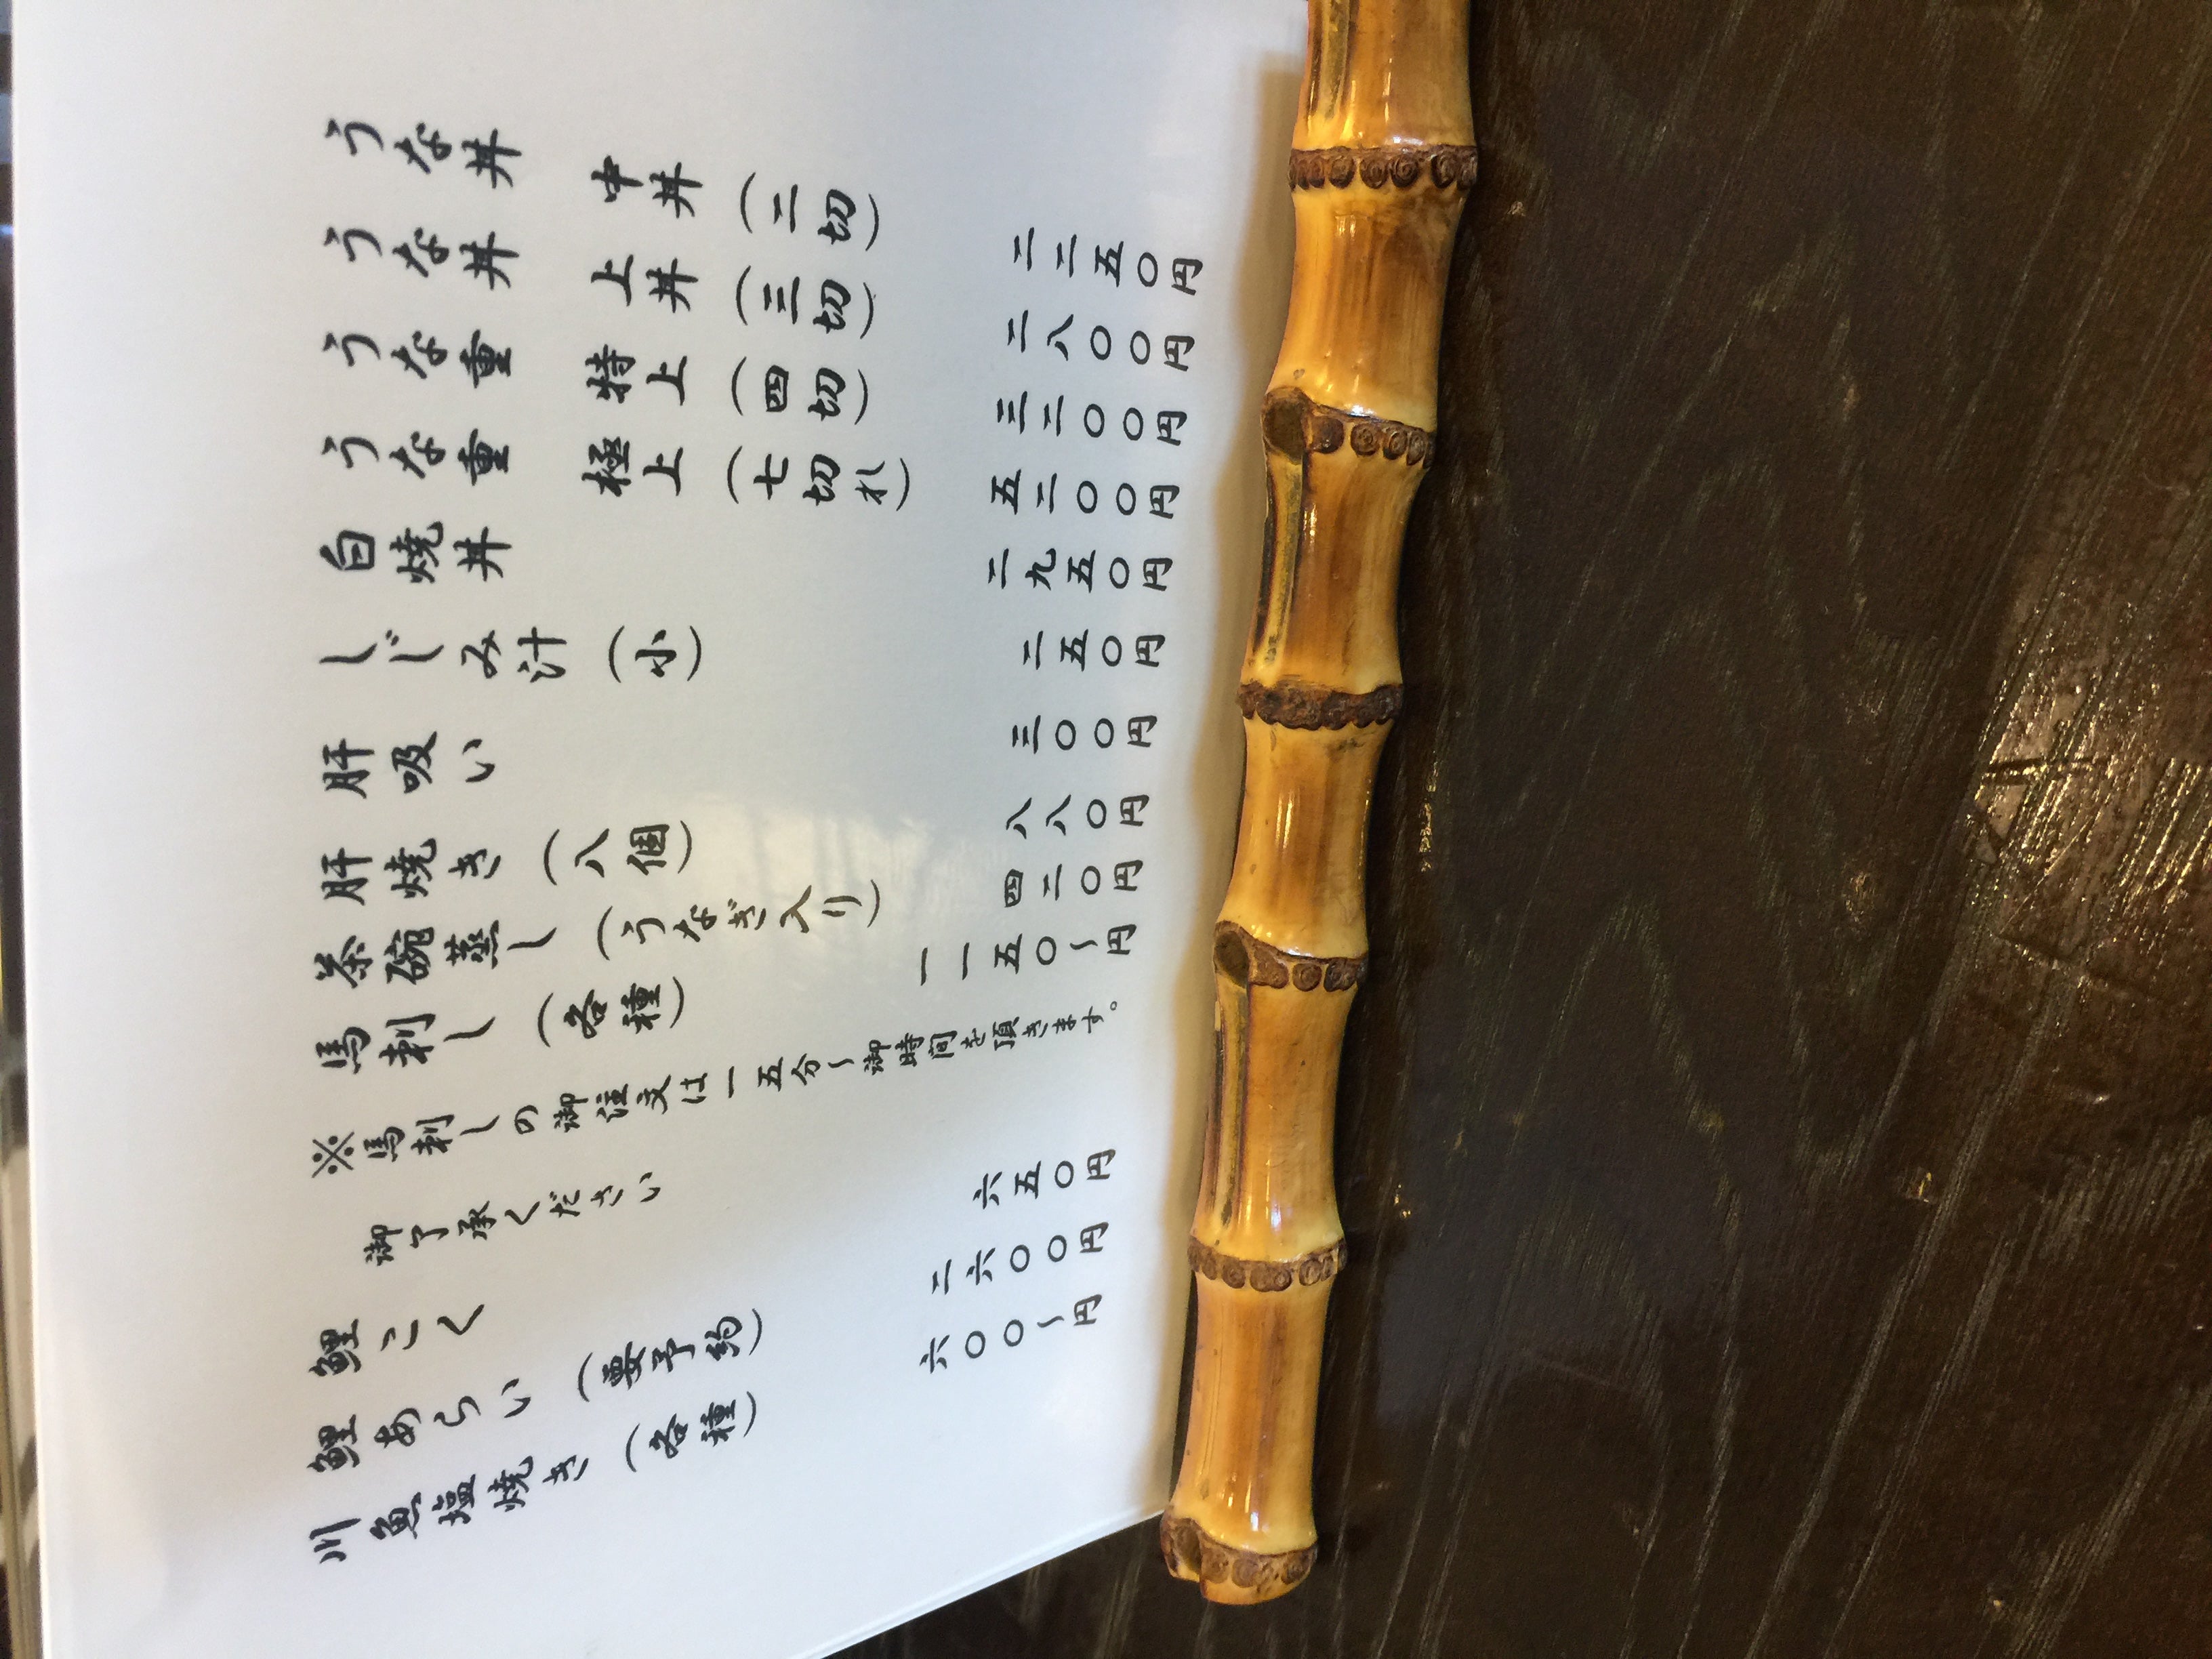 うな丼　中丼（二切）　二二五〇円
うな丼　上丼（三切）　二八〇〇円
うな重　特上（四切）　三二〇〇円
うな重　極上（七切れ）　五二〇〇円
白焼丼　二九五〇円
しじみ汁（小）　二五〇円
肝吸い　三〇〇円
肝焼き（八個）　八八〇円
茶碗蒸し（うなぎ入り）　四二〇円
馬刺し（各種）　一一五〇〜円
※馬刺しの御注文は一五分〜御時間を頂きます。
御了承ください
鯉こく　六五〇円
鯉あらい（要予約）　二六〇〇円
川魚塩焼き（各種）　六〇〇〜円